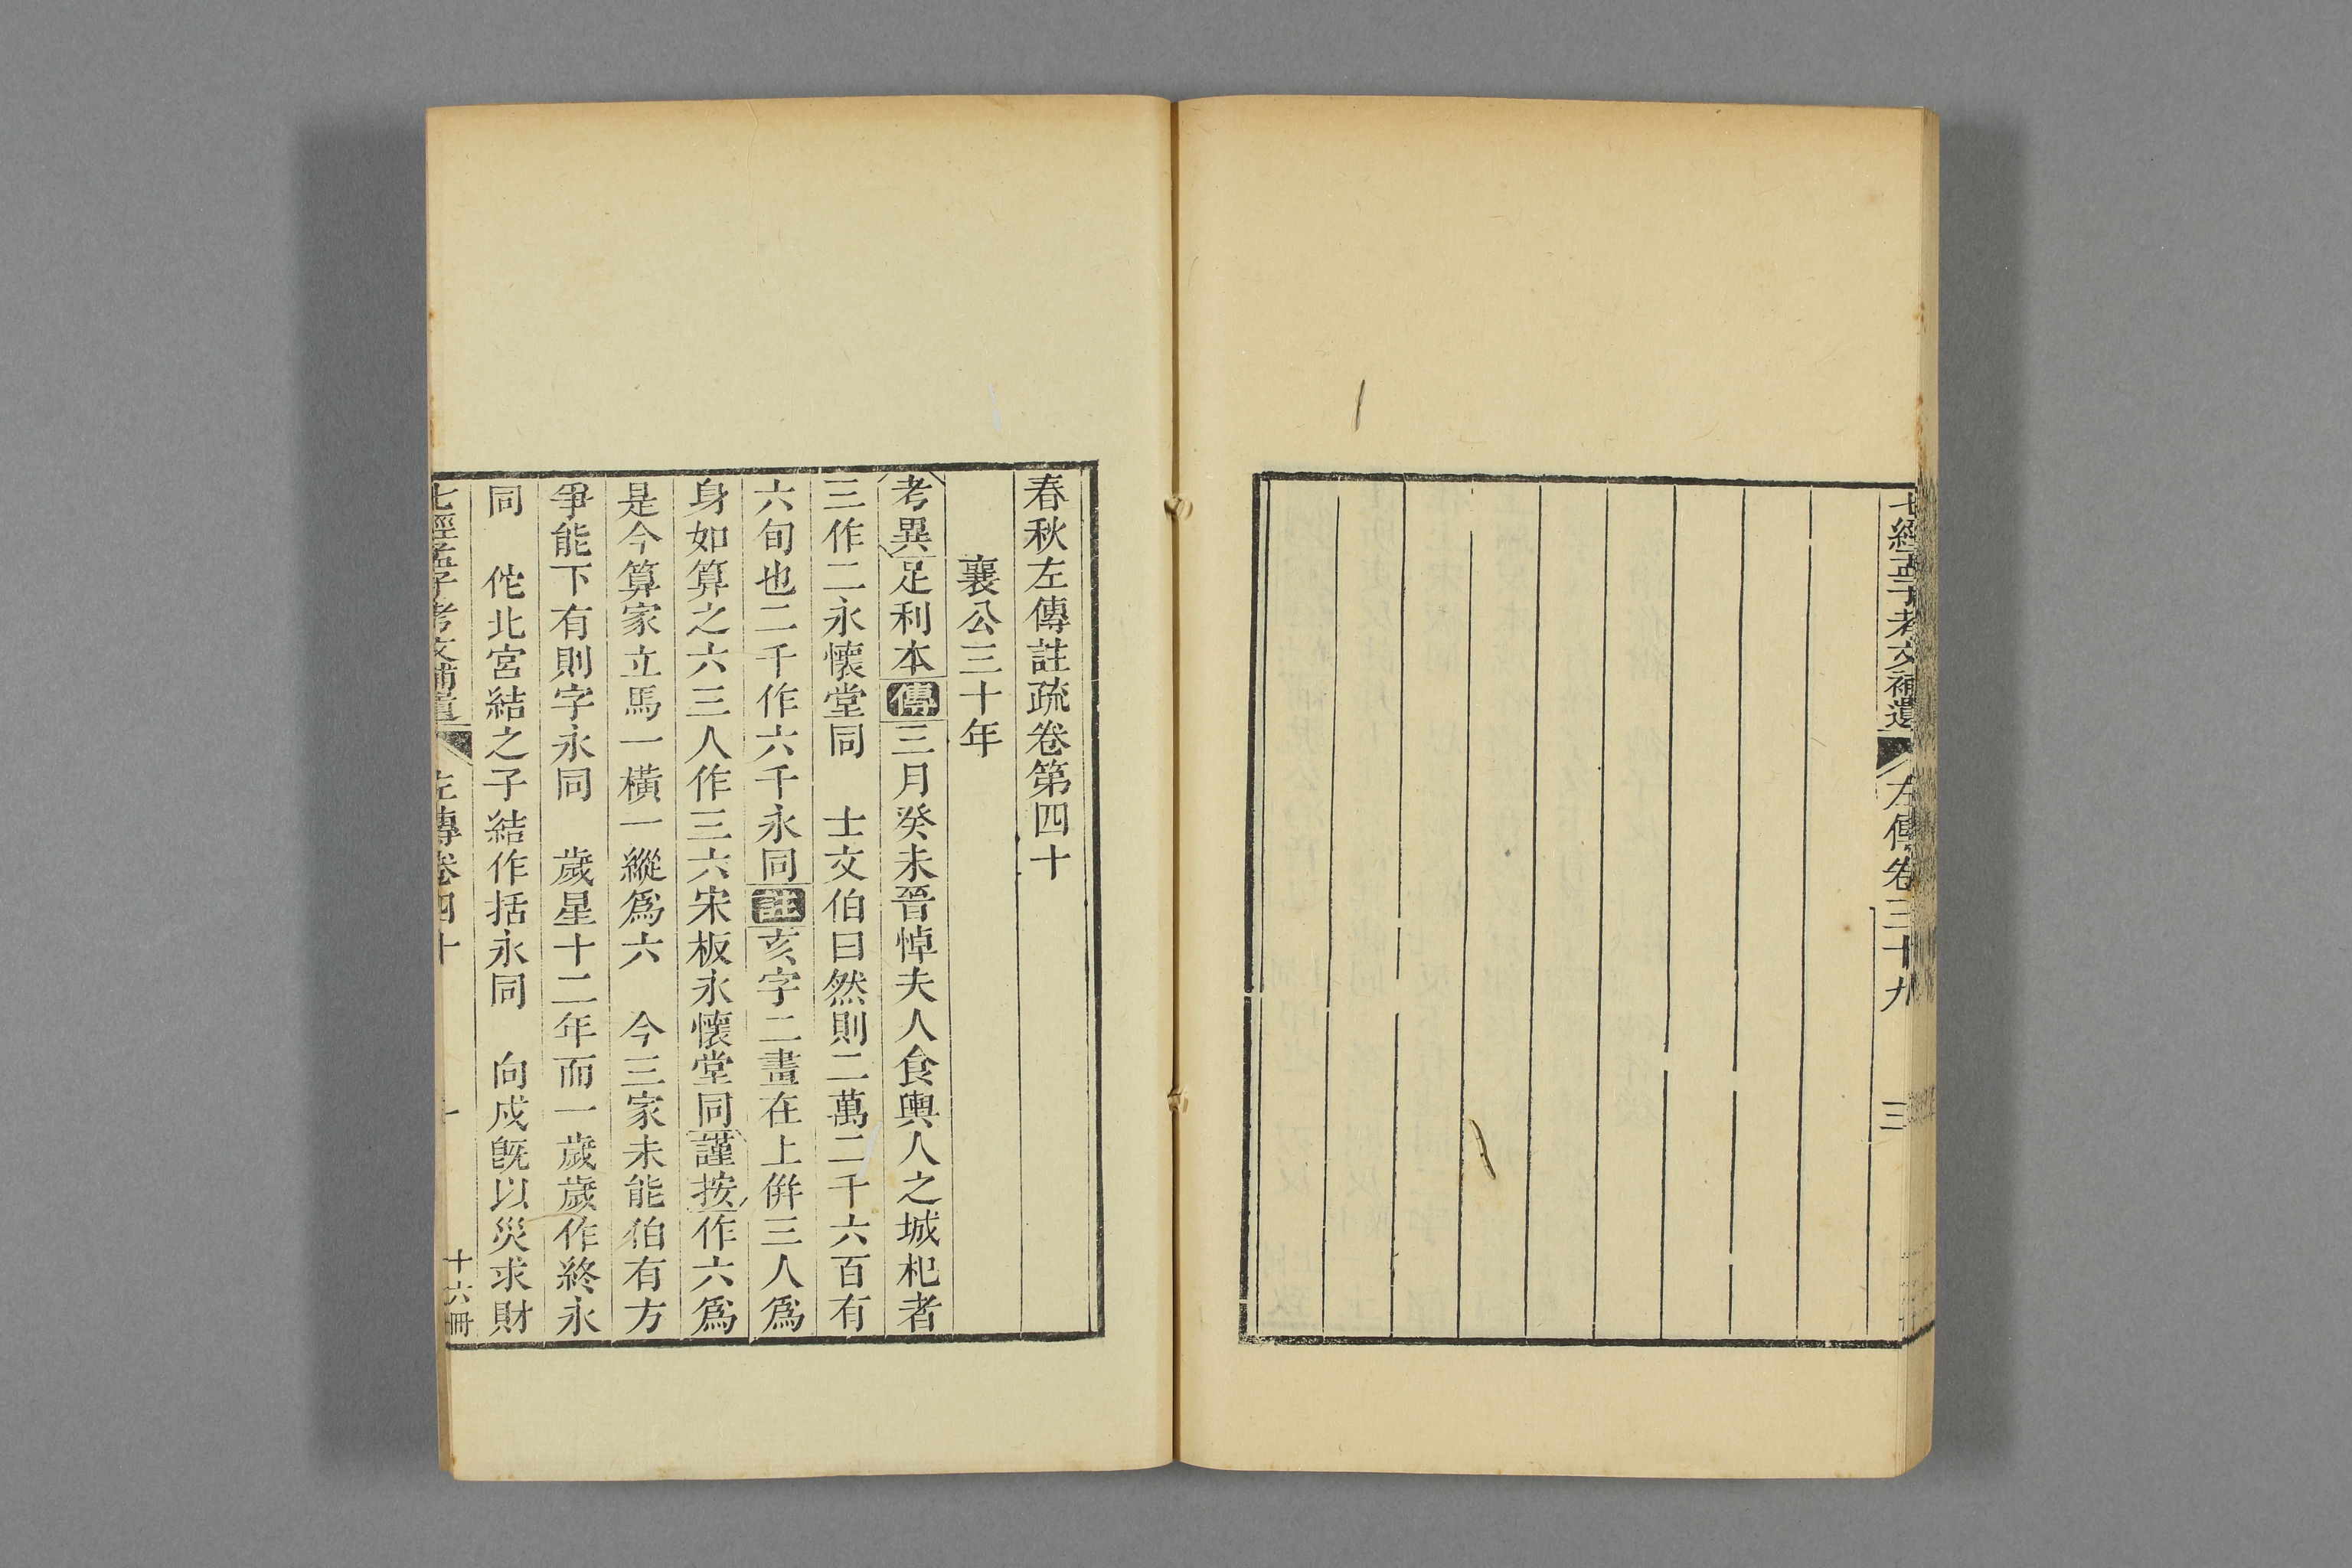 七經孟子考文補遺 左傳卷三十九 三
春秋左傳註疏卷第四十
襄公三十年
考異足利本傳三月癸未晉悼夫人食輿人之城杞者
三作二永懷堂同 士文伯曰然則二萬二千六百有
六旬也二千作六千永同註亥字二畫在上倂三人爲
身如算之六三人作三六宋板永懷堂同謹按作六爲
是今算家立馬一橫一縱爲六 今三家未能伯有方
爭能下有則字永同 歲星十二年而一歲歲作終永
同 佗北宮結之子結作括永同 向戌旣以災求財
七經孟子考文補遺 左傳卷四十 一 十六冊